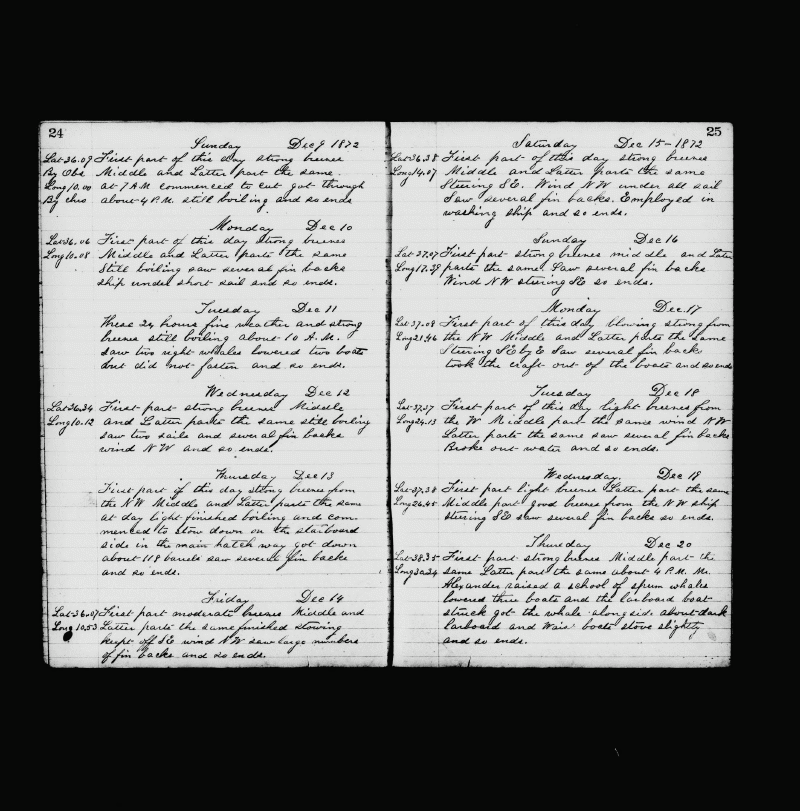 24
Sunday Dec 9 1872
Lat 36.09 First part of this day strong breezes
By Obs Middle and Latter part the same
Long 10.00 at 7 A M commenced to cut got through
By chro about 4 P.M. still boiling and so ends
Monday Dec 10
Lat 36.06 First part of this day strong breezes
Long 10.08 Middle and Latter parts the same
Still boiling saw several fin backs
ship under short sail and so ends.
Tuesday Dec 11
These 24 hours fine weather and strong
breezes still boiling about 10 A.M.
saw two right whales lowered two boats
but did not fasten and so ends.
Wednesday Dec 12
Lat 36.34 First part strong breezes Middle
Long 10.12 and Latter parts the same still boiling
saw two sails and several fin backs
wind N W and so ends.
Thursday Dec 13
First part of this day strong breezes from
the N W Middle and Latter parts the same
at day light finished boiling and com-
menced to stow down on the starboard
side in the main hatch way got down
about 118 barels saw several fin backs
and so ends.
Friday Dec 14
Lat 36.07 First part moderate breezes Middle and
Long 10.53 Latter parts the same finished stowing
kept of S E wind N W saw large numbers
of fin backs and so ends.
25
Saturday Dec 15 - 1872
Lat 36.38 First part of this day strong breezes
Long 14.07 Middle and Latter parts the same
Steering S E. Wind N W under all sail
Saw several fin backs. Employed in
washing ship and so ends.
Sunday Dec 16
Lat 37.07 First part strong breezes middle and Latter
Long 17.39 parts the same. Saw several fin backs
Wind N W stering S E so ends.
Monday Dec. 17
Lat 37.08 First part of this day blowing strong from
Long 21.46 the N W Middle and Latter parts the same
Steering S E by E Saw several fin backs
took the craft out of the boats and so ends
Tuesday Dec 18
Lat 37.37 First part of this day light breezes from
Long 24.13 the W Middle part the same wind N W
Latter parts the same saw several fin backs
Broke out water and so ends.
Wednesday. Dec 19
Lat 37.38 First part light breezes Latter part the same
Long 26.45 Middle part good breezes from the N W ship
stering S E saw several fin backs so ends.
Thursday Dec 20
Lat 38.35 First part strong breezes Middle part the
Long 30.34 same Latter part the same about 4 P.M. Mr.
Alexander raised a school of sprum whales
lowered three boats and the larboard boat
struck got the whale along side about dark
larboard and Waist boats stove slightly
and so ends.